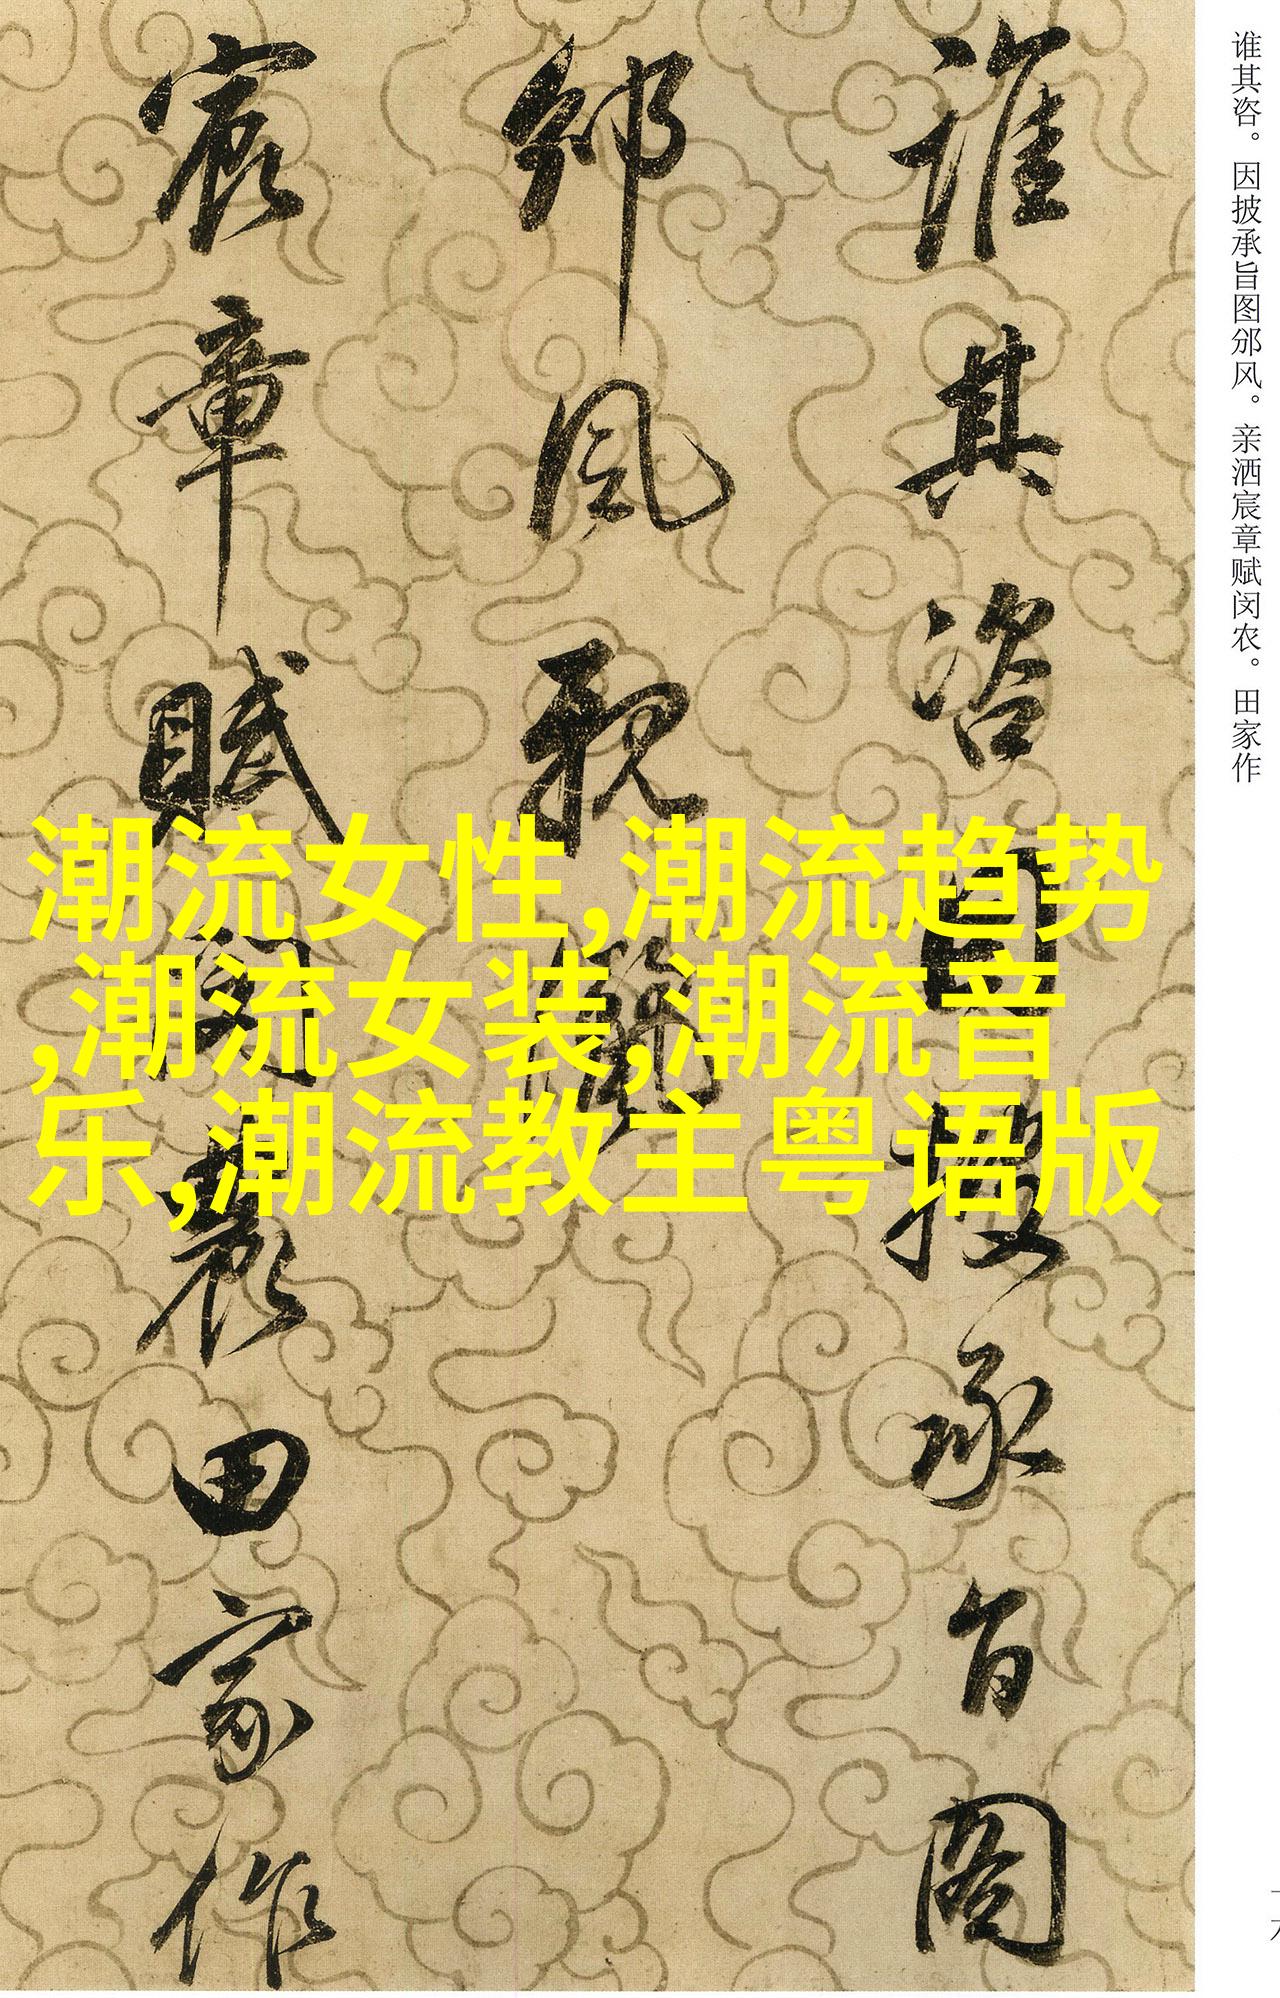 谁其咨。因披承旨图邠风。亲洒宸章赋闵农。田家作
誰其咨因披承旨圖
邠風親灑
宸章賦閔農田家作
潮流女性,潮流趋势
,潮流女装,潮流音
乐,潮流教主粤语版